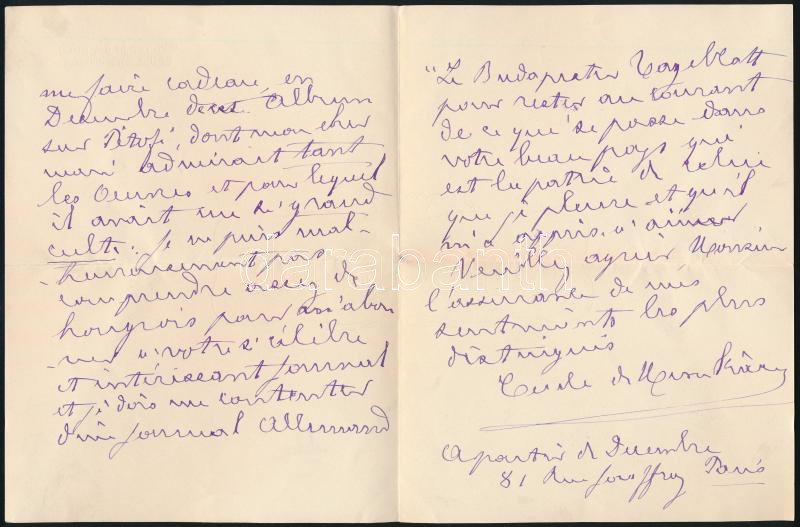 me faire cadeau en
Decembre de cet Album
sur Pétofi, dont mon cher
mari admirait tant
les Oeuvres et pour lequel
il avait un si grand
culte. Je ne puis mal-
-heureusement pas
comprendre assez de
hongrois pour m'abon
-ner à votre si célèbre
et intéressant journal
et je dois me contenter
d'un journal Allemand
"Le Budapester Tageblatt
pour rester au courant
de ce qui se passe dans
votre beau pays qui
est la patrie de celui
que je pleure et qu'il
m'a appris à aimer
Veuillez agréer Monsieur
l'assurance de mes
sentiments les plus
distingués
Cecile de Munkácsy
A partir de Decembre
81 Rue Jouffroy Paris
databanth